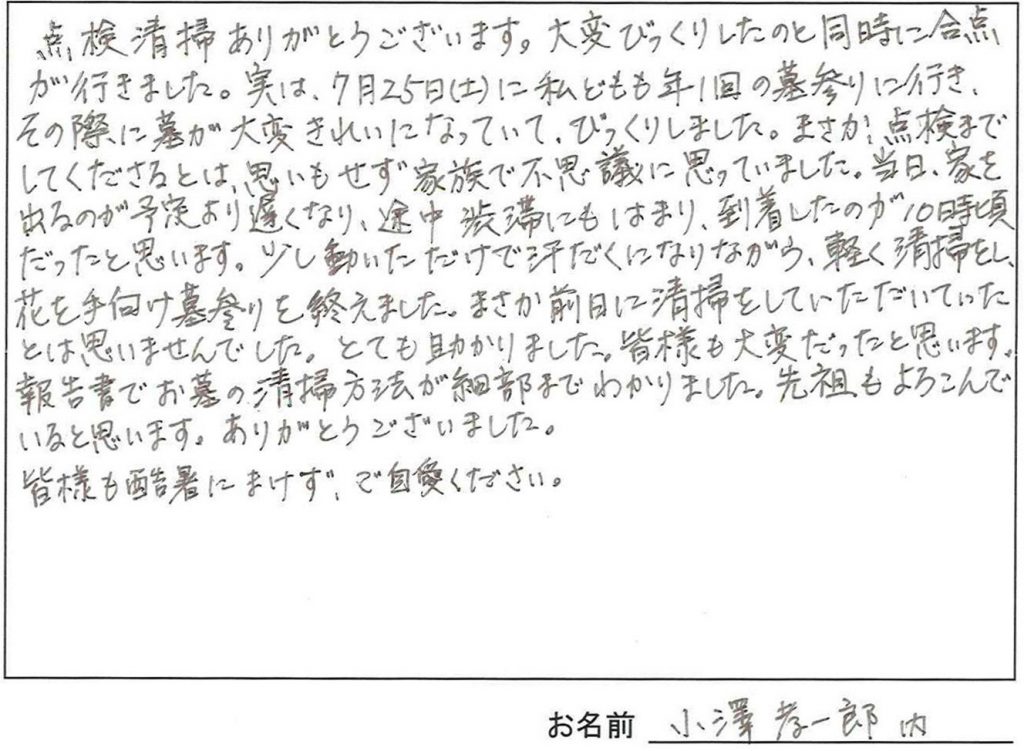 点検清掃ありがとうございます。大変びっくりしたのと同時に合点
が行きました。実は、7月25日(土)に私どもも年1回の墓参りに行き、
その際に墓が大変きれいになっていて、びっくりしました。まさか、点検まで
してくださるとは、思いもせず家族で不思議に思っていました。当日、家を
出るのが予定より遅くなり、途中渋滞にもはまり、到着したのが10時頃
だったと思います。少し動いただけで汗だくになりながら、軽く清掃をし、
花を手向け墓参りを終えました。まさか前日に清掃をしていただいていた
とは思いませんでした。とても助かりました。皆様も大変だったと思います。
報告書でお墓の清掃方法が細部までわかりました。先祖もよろこんで
いると思います。ありがとうございました。
皆様も酷暑にまけず、ご自愛ください。
お名前 小澤孝一郎 内